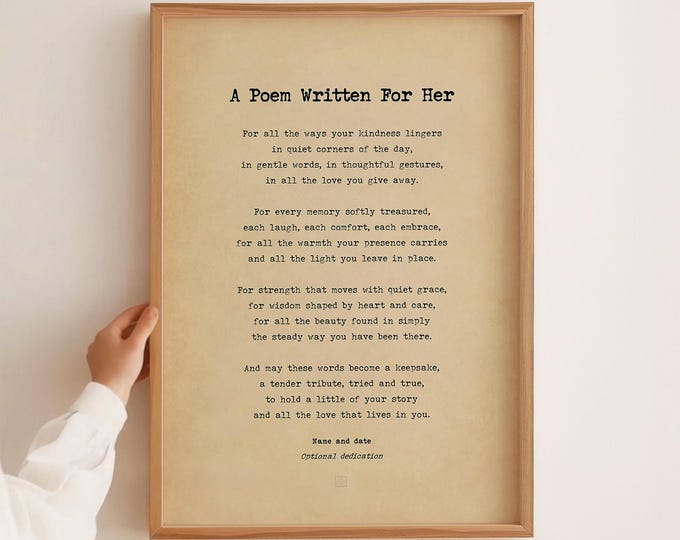 A Poem Written For Her
For all the ways your kindness lingers
in quiet corners of the day,
in gentle words, in thoughtful gestures,
in all the love you give away.
For every memory softly treasured,
each laugh, each comfort, each embrace,
for all the warmth your presence carries
and all the light you leave in place.
For strength that moves with quiet grace,
for wisdom shaped by heart and care,
for all the beauty found in simply
the steady way you have been there.
And may these words become a keepsake,
a tender tribute, tried and true,
to hold a little of your story
and all the love that lives in you.
Name and date
Optional dedication